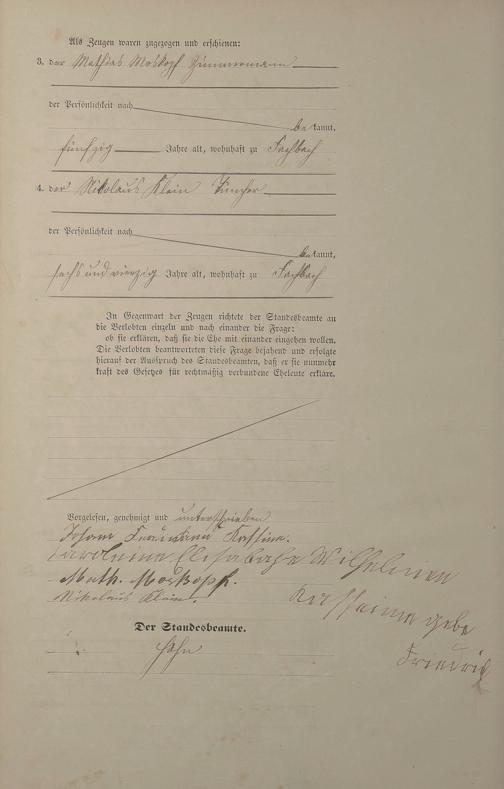 Als Zeugen waren zugezogen und erschienen:
3. der Mathias Moskopf Zimmermann
der Persönlichkeit nach
be kannt,
fünfzig Jahre alt, wohnhaft zu Fachbach
4. der Nikolaus Klein Tüncher
der Persönlichkeit nach
be kannt,
sechs und vierzig Jahre alt, wohnhaft zu Fachbach
In Gegenwart der Zeugen richtete der Standesbeamte an
die Verlobten einzeln und nach einander die Frage:
ob sie erklären, daß sie die Ehe mit einander eingehen wollen.
Die Verlobten beantworteten diese Frage bejahend und erfolgte
hierauf der Ausspruch des Standesbeamten, daß er sie nunmehr
kraft des Gesetzes für rechtmäßig verbundene Eheleute erkläre.
Vorgelesen, genehmigt und unterschrieben
Johann
Wilhelmien
Math. Moskopf.
Nikolaus Klein.
gebe
Friedrich
Der Standesbeamte.
Hahn